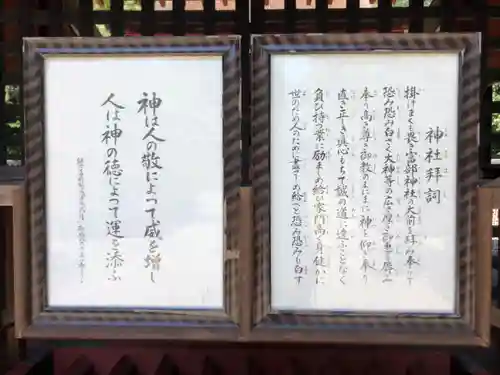 神社拝詞
掛けまくも畏き當郡神社の大前を拝み奉りて
恐み恐み白さく大神等の広き厚き御恵を辱み
奉り高き尊き御教のまにまに神を仰ぎ奉り
直き正しき真心もちて誠の道に違ふことなく
負ひ持つ業に励ましめ給ひ家門高く身健かに
世のため人のために尽さしめ給へと恐み恐みも白す
神は人の敬によって威を増し
人は神の徳によって運を添ふ